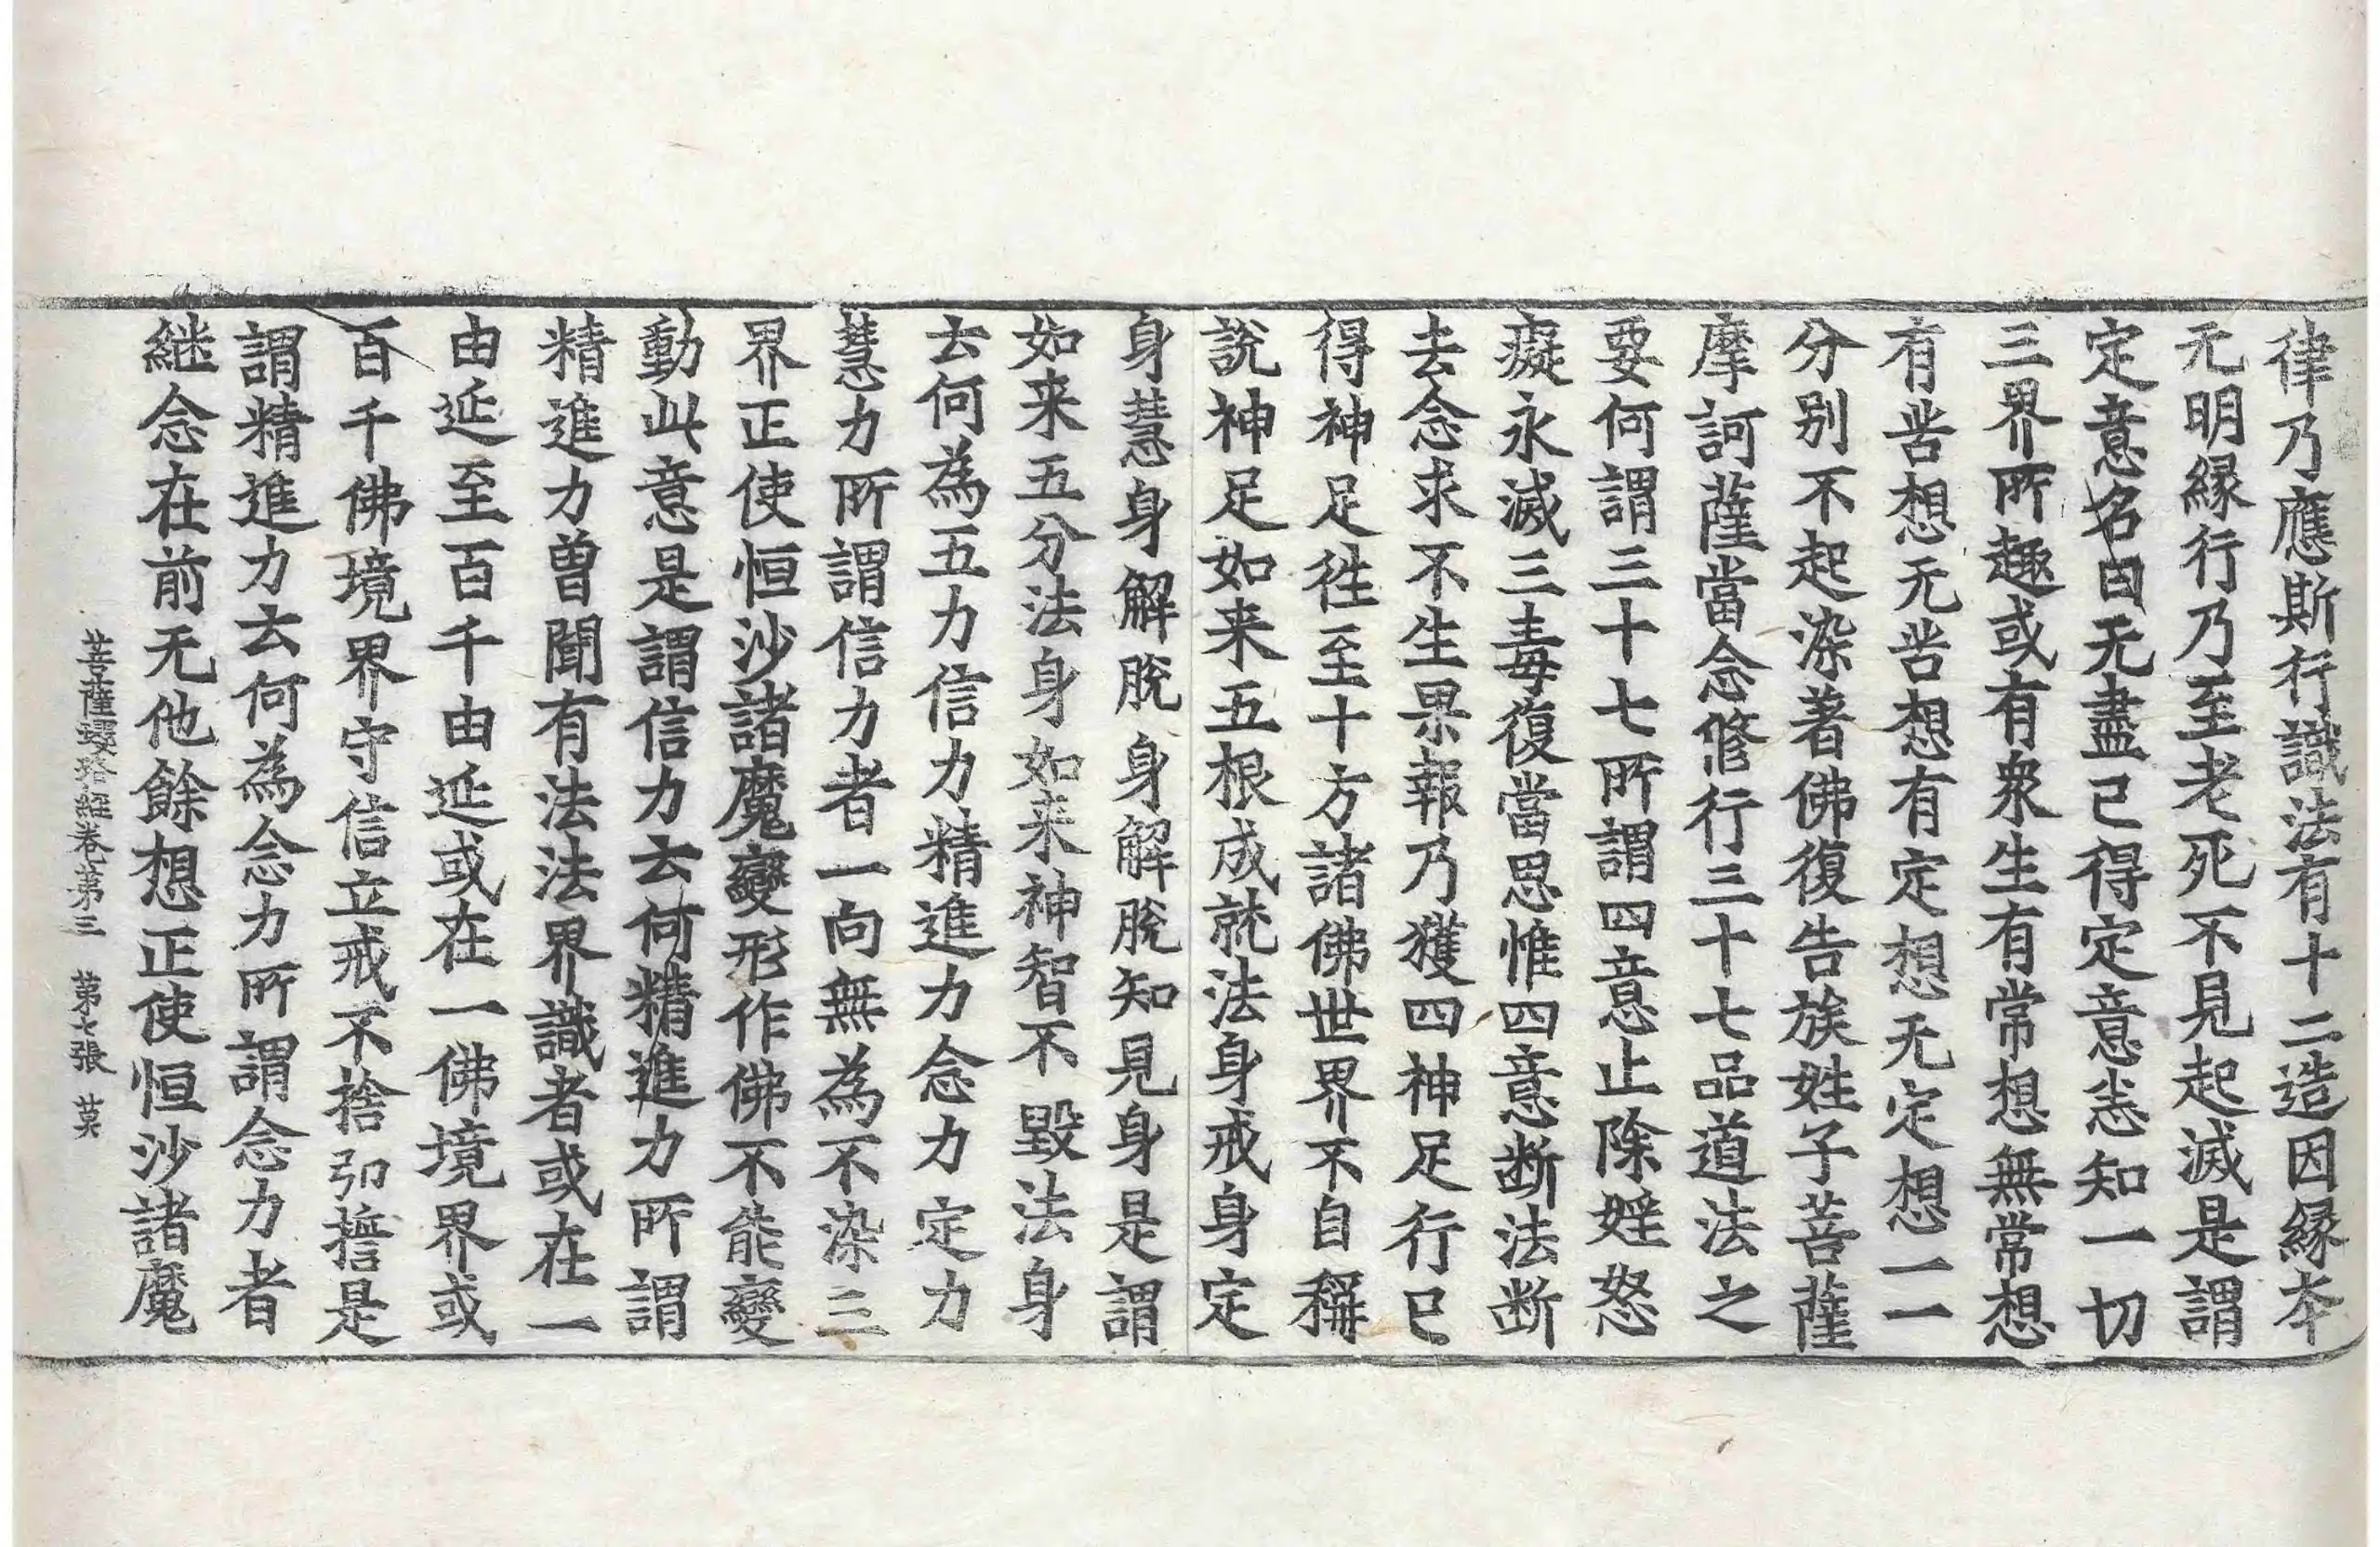 律乃應斯行識法有十二造因縁夲
无明縁行乃至老死不見起滅是謂
定意名曰无盡已得定意悉知一切
三界所趣或有衆生有常想無常想
有苦想无苦想有定想无定想一一
分别不起染著佛復告族姓子菩薩
摩訶薩當念修行三十七品道法之
要何謂三十七所謂四意止除婬怒
癡永滅三毒復當思惟四意断法断
去念求不生果報乃獲四神足行已
得神足徃至十方諸佛世界不自稱
說神足如来五根成就法身戒身定
身慧身解脫身解脫知見身是謂
如来五分法身如来神智不毀法身
云何為五力信力精進力念力定力
慧力所謂信力者一向無為不染三
界正使恒沙諸魔變形作佛不能變
動此意是謂信力云何精進力所謂
精進力曽聞有法法界識者或在一
由延至百千由延或在一佛境界或
百千佛境界守信立戒不捨弘誓是
謂精進力云何為念力所謂念力者
継念在前无他餘想正使恒沙諸魔
菩薩瓔珞經卷第三　第七張　莫